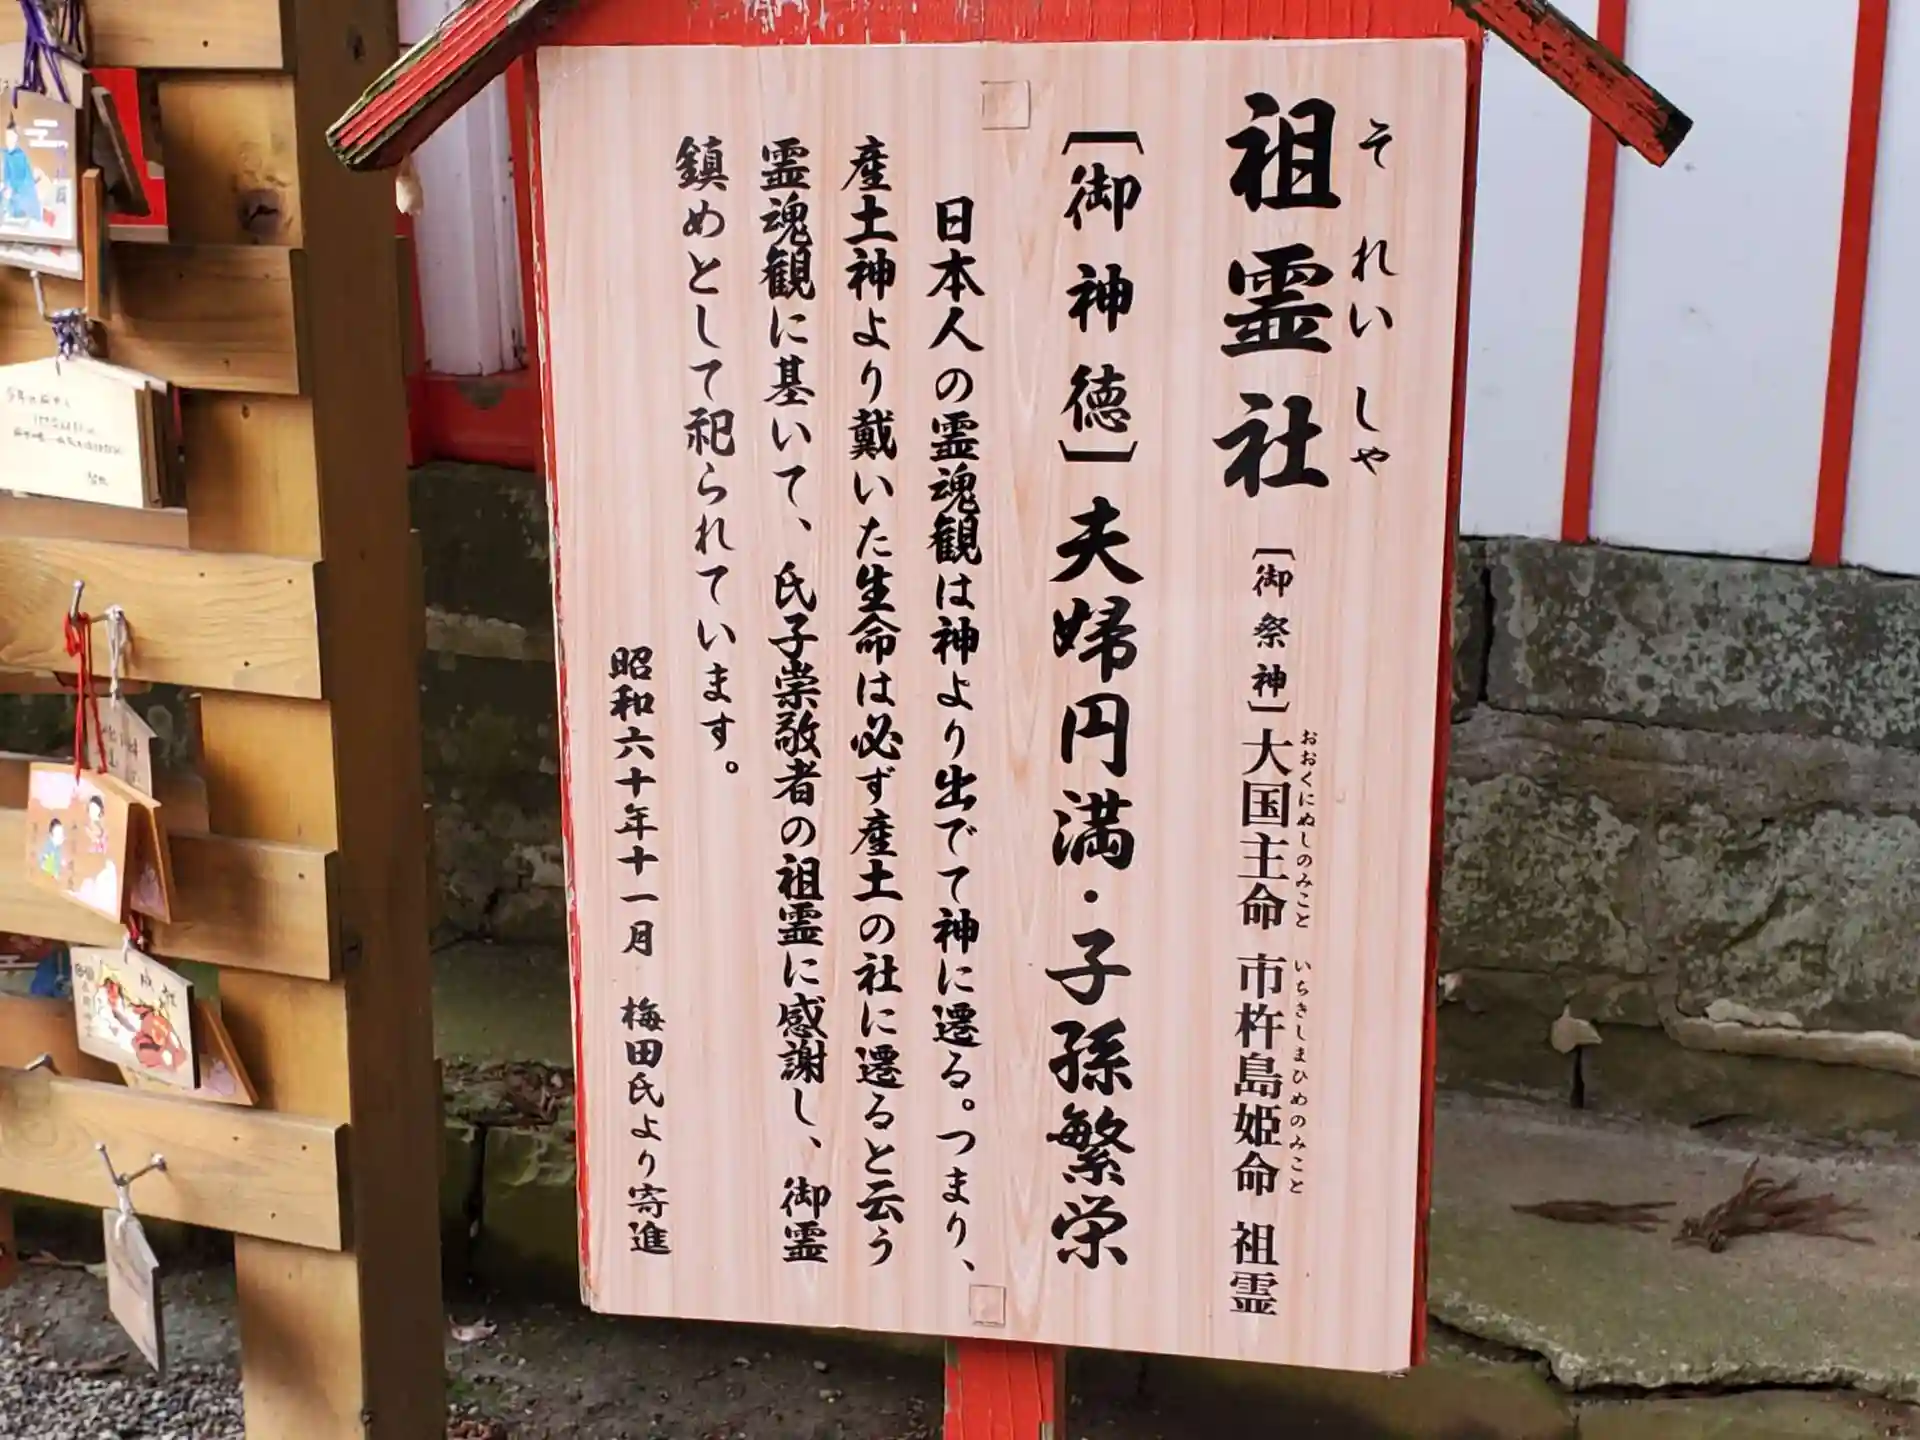 祖霊社
それいしゃ
〔御祭神〕大国主命 市杵島姫命 祖霊
おおくにぬしのみこと いちきしまひめのみこと
〔御神徳〕夫婦円満・子孫繁栄
日本人の霊魂観は神より出でて神に遷る。つまり、
産土神より戴いた生命は必ず産土の社に遷ると云う
霊魂観に基いて、氏子崇敬者の祖霊に感謝し、御霊
鎮めとして祀られています。
昭和六十年十一月 梅田氏より寄進